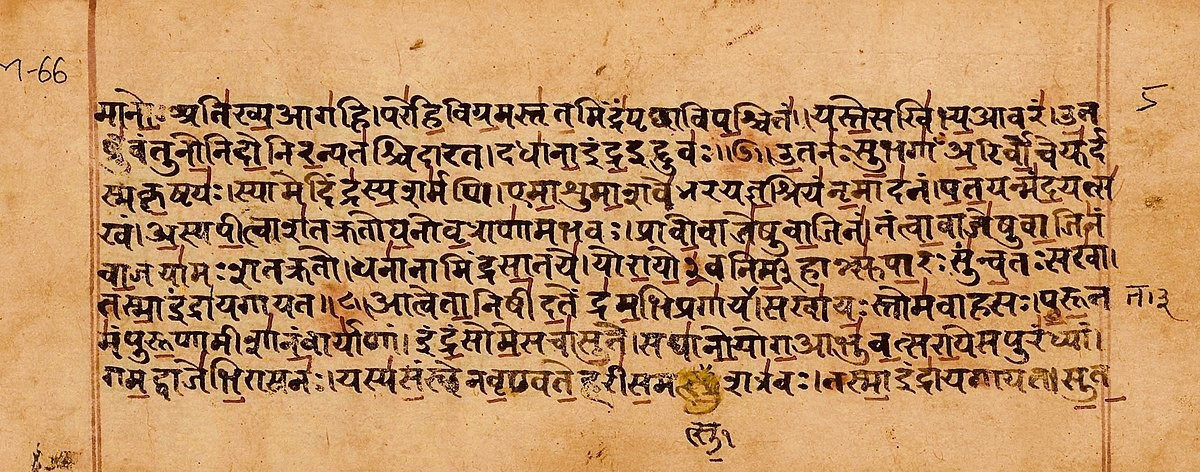 M-66
मानो॒अति॑ख्य॒आग॑हि।परे॑हि॒विग्र॒मस्तृ॑त॒मिंद्रं॑पृच्छाविप॒श्चितं॑।यस्ते॒सखि॑भ्य॒आवरं॑।उ॒त 5
ब्रु॑वंतुनो॒निदो॒निर॒न्यत॑श्चिदारत।दधा॑ना॒इंद्र॒इद्दुवः॑॥७॥उ॒तनः॑सु॒भगाँ॑अ॒रिर्वो॒चेयु॑र्द
स्मकृ॒ष्टयः॑।स्यामेदिंद्र॑स्य॒शर्म॑णि।एमा॒शुमा॒शवे॑भरयज्ञ॒श्रियं॑नृ॒माद॑नं।प॒त॒यन्मं॑द॒यत्स
खं।अ॒स्यपी॒त्वाश॑तक्रतोघ॒नोवृ॒त्राणा॑मभवः।प्रावो॒वाजे॑षुवा॒जिनं॑।तंत्वा॒वाजे॑षुवा॒जिनं
वा॒जया॑मःशतक्रतो।धना॑नामिंद्रसा॒तये॑।योरा॒यो॒३॒॑वनि॑र्म॒हान्त्सु॑पा॒रःसु॑न्व॒तःसखा॑।
तस्मा॒इंद्रा॑यगायत॥८॥आत्वेता॒निषी॑द॒तेंद्र॑म॒भिप्रगा॑यत।सखा॑यः॒स्तोम॑वाहसः।पु॒रू॒त
मं॑पुरू॒णामीशा॑नं॒वार्या॑णां।इंद्रं॒सोमे॒सचा॑सु॒ते।सघा॑नो॒योग॒आभु॑व॒त्सरा॒येसपुरं॑ध्यां।
गम॒द्वाजे॑भि॒रासनः॑।यस्य॑सं॒स्थेनवृ॒ण्वते॒हरी॑स॒मत्सु॒शत्र॑वः।तस्मा॒इंद्रा॑यगायत।सु॒त
त्सु१